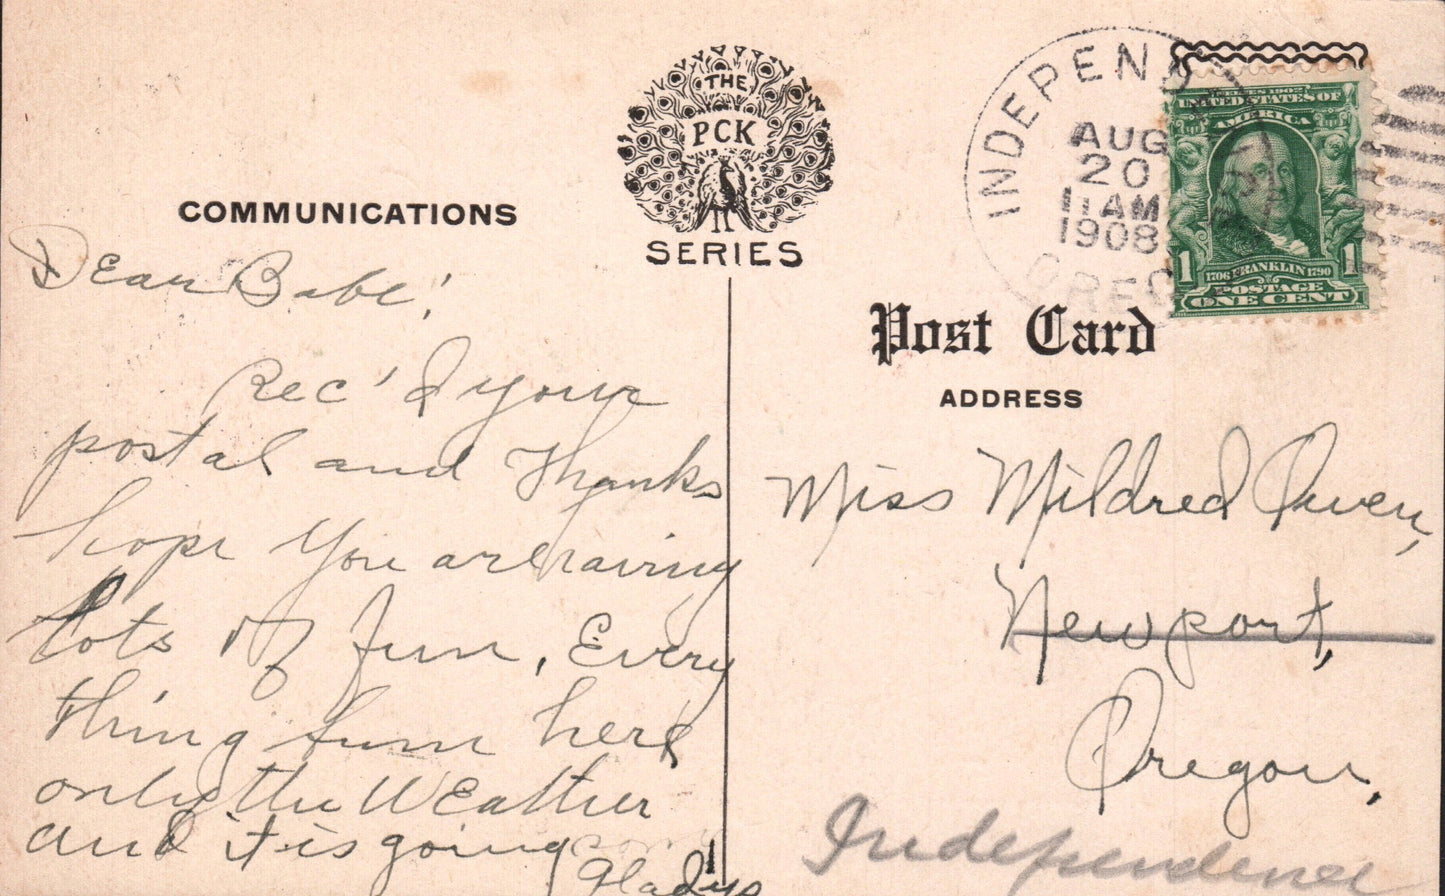 THE
PCK
SERIES
COMMUNICATIONS
Dear Babe!
Rec'd your
postal and Thanks
hope you are having
lots of fun, Every
thing fum here
only the Weather
and it is going some
Gladys
INDEPENDENCE
AUG
20
11 AM
1908
OREG
SERIES 1902
UNITED STATES OF
AMERICA
1 1
1706 FRANKLIN 1790
POSTAGE
ONE CENT
Post Card
ADDRESS
Miss Mildred Owen,
Newport,
Oregon,
Independence